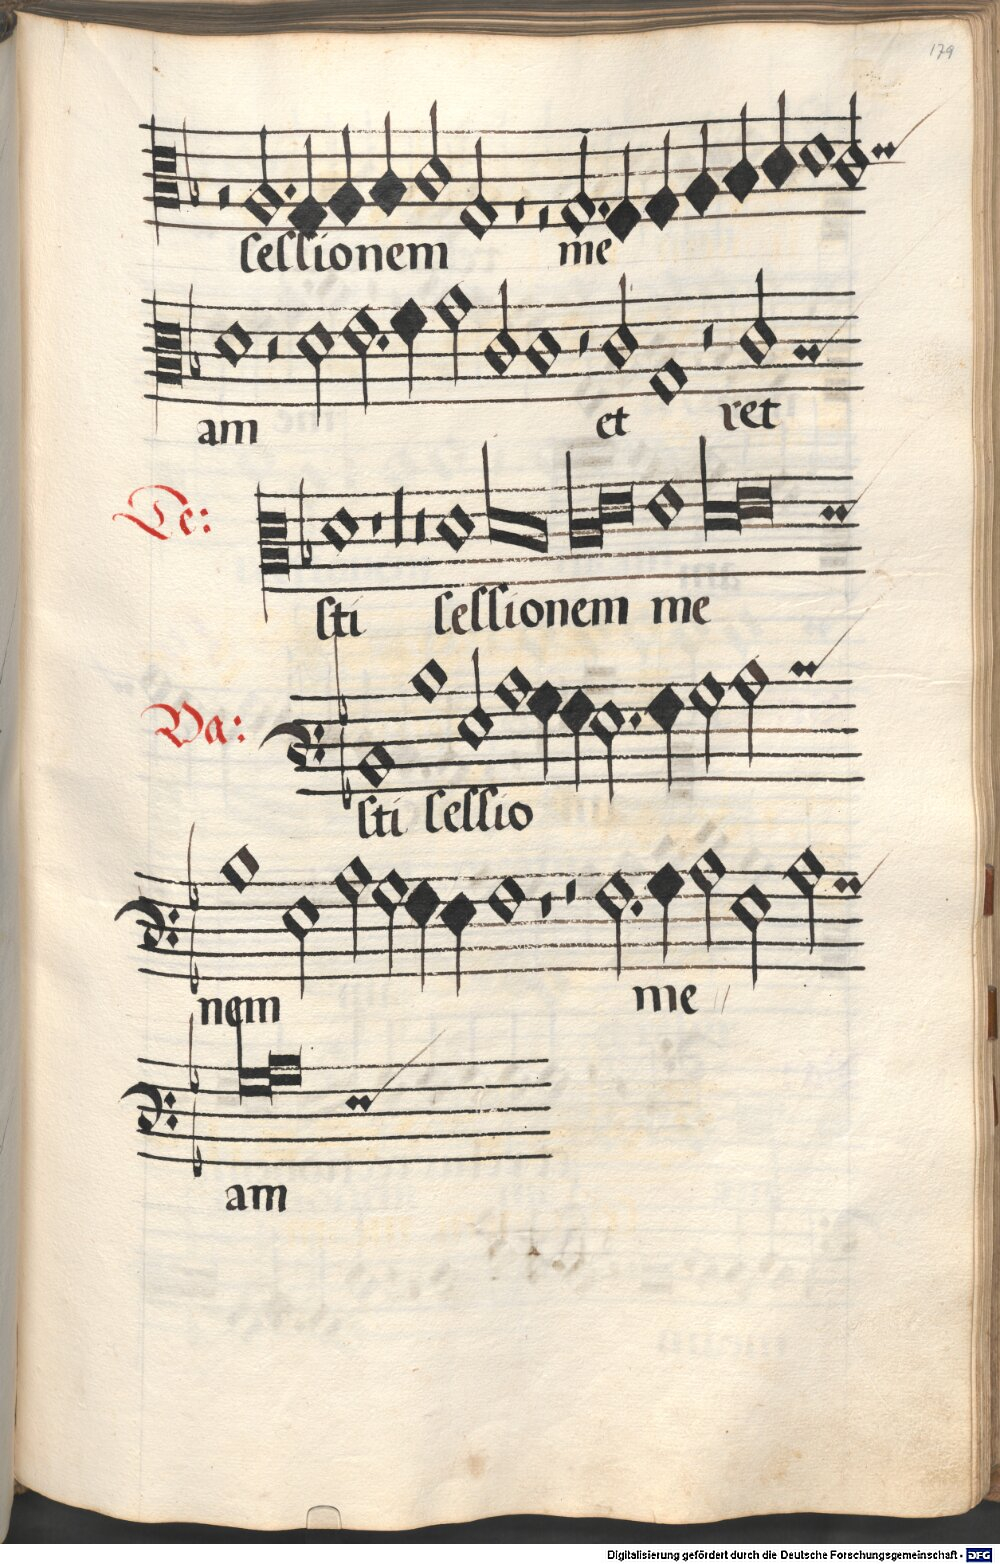 179
sessionem me
am et ret
Te:
sti sessionem me
Ba:
sti sessio
nem me
am
Digitalisierung gefördert durch die Deutsche Forschungsgemeinschaft - DFG